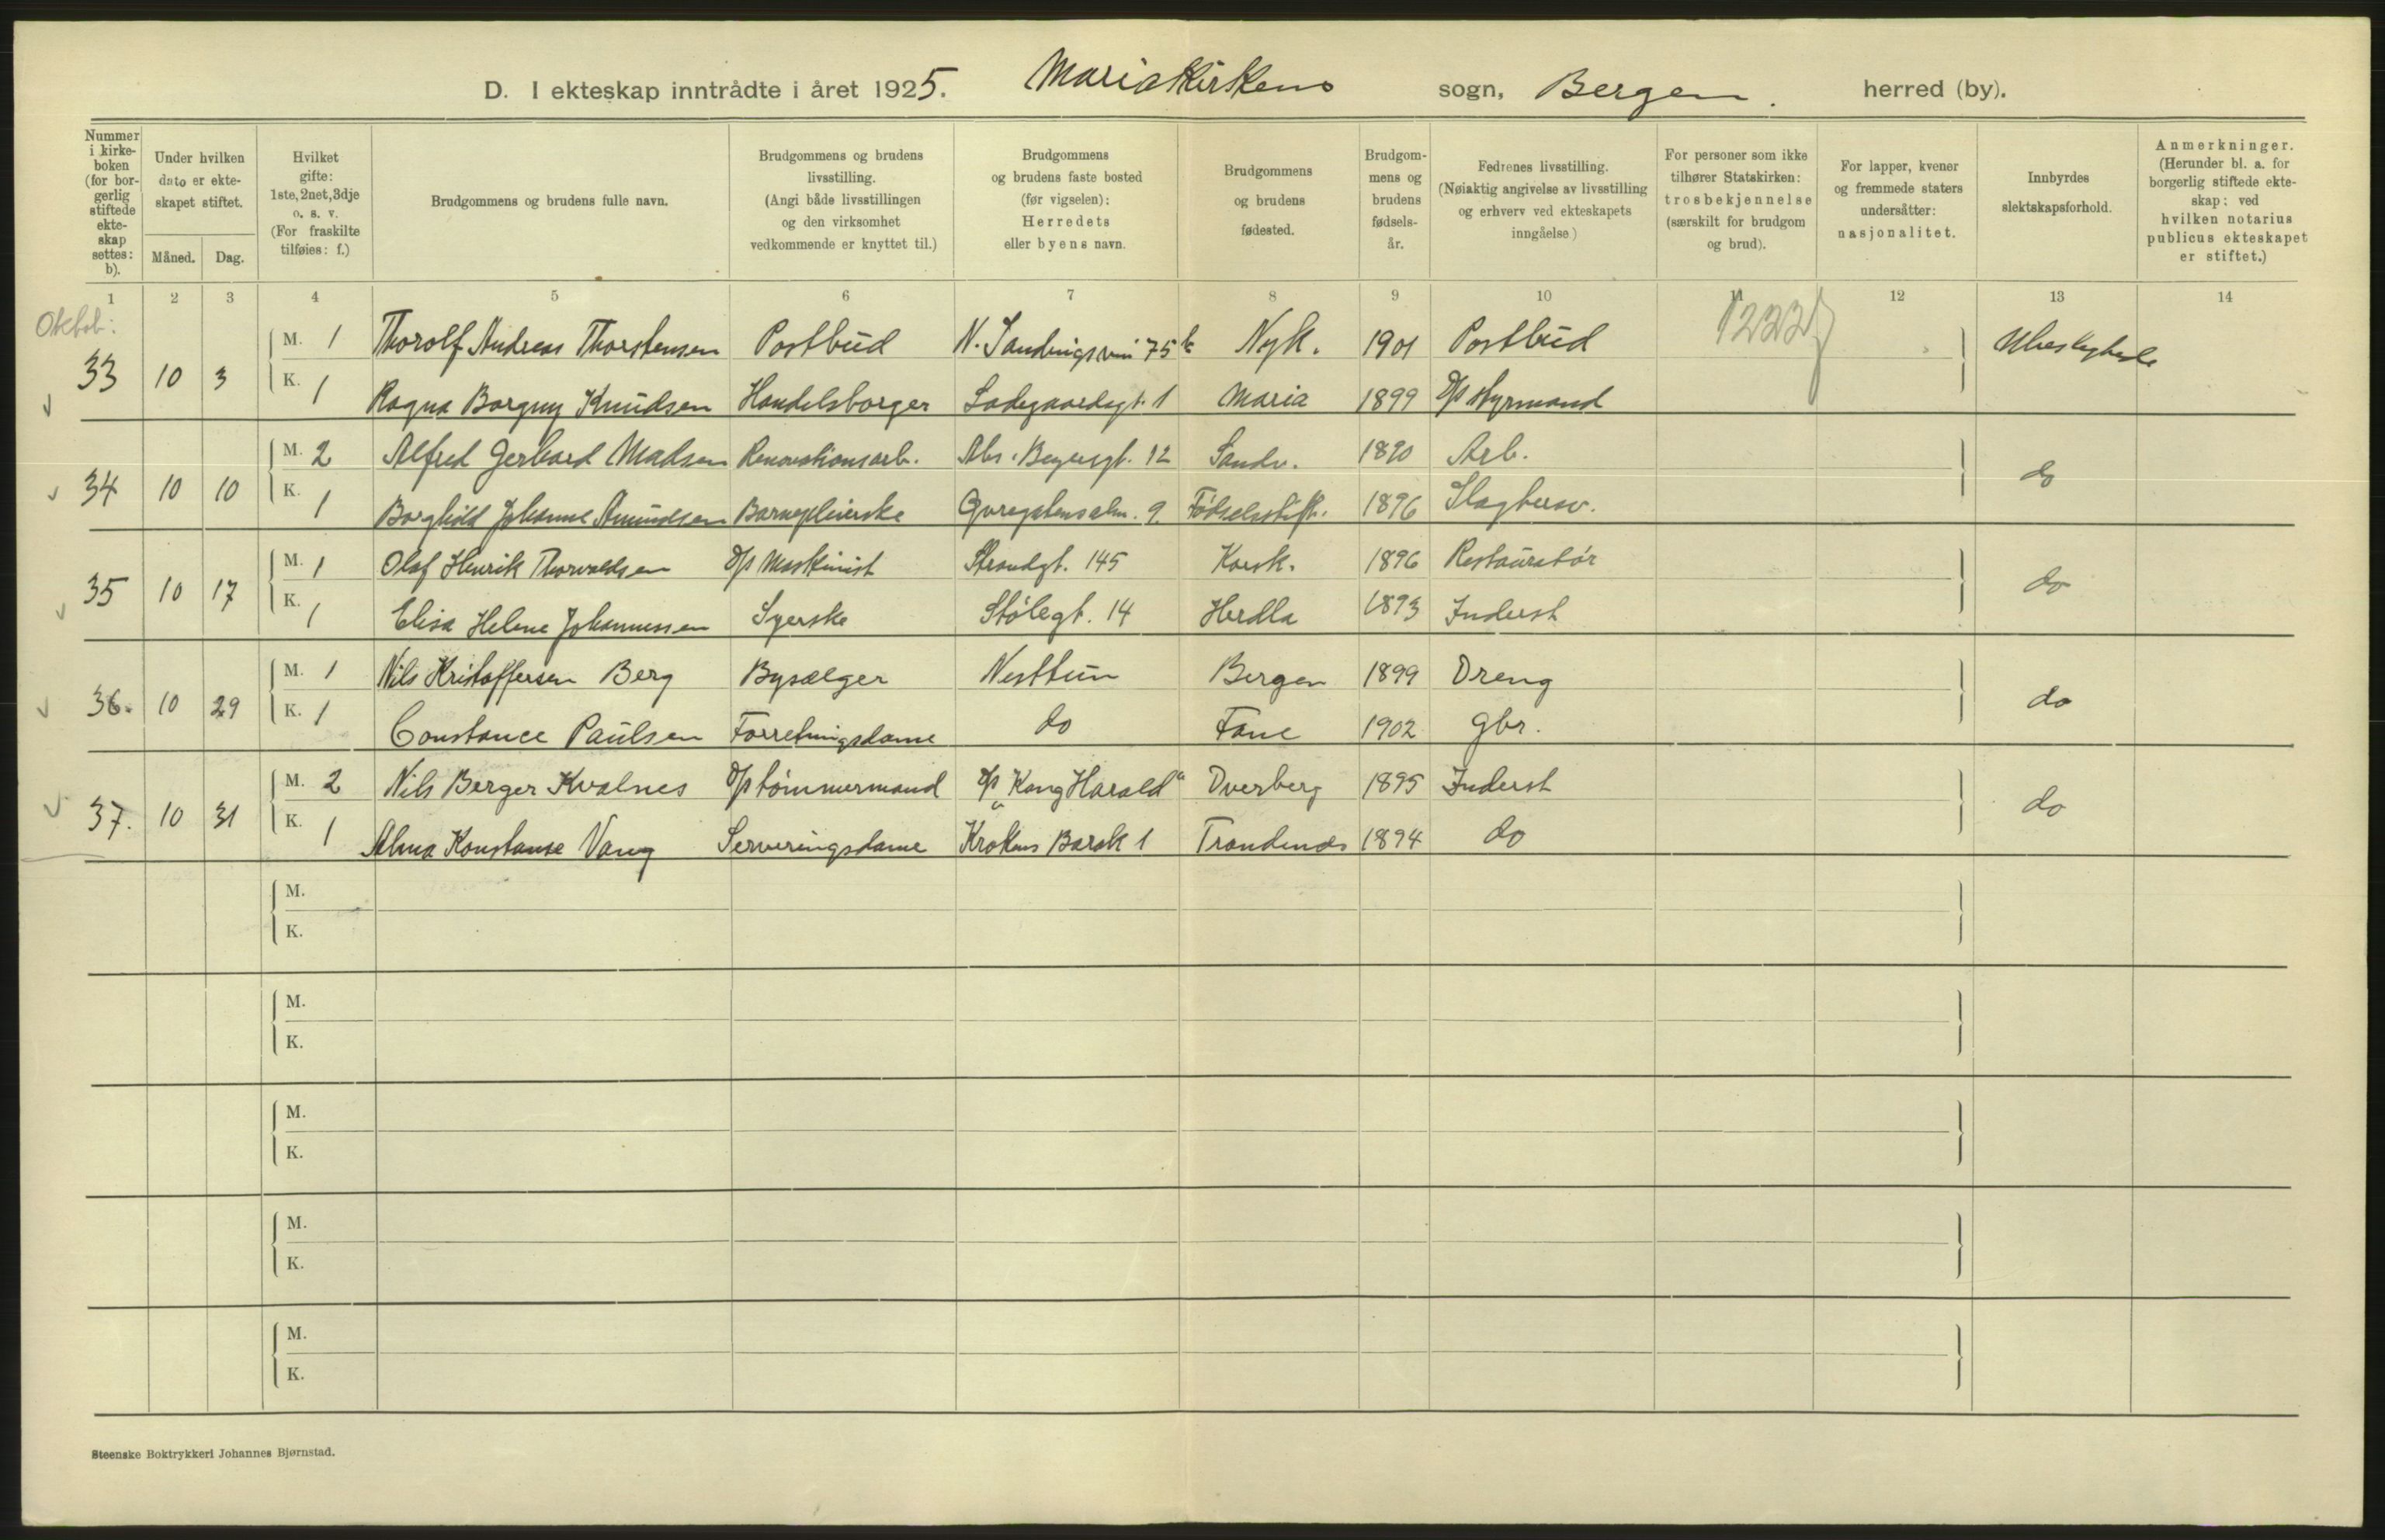 D. I ekteskap inntrådte i året 1925. Mariakirkens sogn, Bergen. herred (by).
Nummer i kirke-boken (for bor-gerlig stiftede ekte-skap settes: b).
Under hvilken dato er ekte-skapet stiftet.
Måned. Dag.
Hvilket gifte: 1ste, 2net, 3dje o. s. v. (For fraskilte tilføies: f.)
Brudgommens og brudens fulle navn.
Brudgommens og brudens livsstilling. (Angi både livsstillingen og den virksomhet vedkommende er knyttet til.)
Brudgommens og brudens faste bosted (før vigselen): Herredets eller byens navn.
Brudgommens og brudens fødested.
Brudgom-mens og brudens fødsels-år.
Fedrenes livsstilling. (Nøiaktig angivelse av livsstilling og erhverv ved ekteskapets inngåelse)
For personer som ikke tilhører Statskirken: trosbekjennelse (særskilt for brudgom og brud).
For lapper, kvener og fremmede staters undersåtter: nasjonalitet.
Innbyrdes slektskapsforhold.
Anmerkninger. (Herunder bl. a. for borgerlig stiftede ekte-skap: ved hvilken notarius publicus ekteskapet er stiftet.)
1 2 3 4 5 6 7 8 9 10 11 12 13 14
Oktob:
33 10 3 M. 1 Thorolf Andreas Thorstensen Postbud 75 b Nyk. 1901 Postbud
K. 1 Ragna Borgny Knudsen Handelsborger Ladegaardsgt. 1 Maria 1899 D/S styrmand
34 10 10 M. 2 Alfred Gerhard Madsen Renovationsarb. Abs. Beyersgt. 12 Sandv. 1890 Arb. do
K. 1 Borghild Johanne Amundsen Barnepleierske 9. Fødselsstift. 1896
35 10 17 M. 1 Olaf Henrik Thorvaldsen D/S Maskinist Strandgt. 145 Korsk. 1896 Restauratør do
K. 1 Elisa Helene Johannessen Syerske Stølegt. 14 Herdla 1893 Inderst
36. 10 29 M. 1 Nils Kristoffersen Berg Bysælger Nesttun Bergen 1899 Dreng do
K. 1 Constance Paulsen Forretningsdame do Fane 1902 Gbr.
37. 10 31 M. 2 Nils Berger Kvalnes D/S tømmermand D/S "Kong Harald" Dverberg 1895 Inderst do
K. 1 Alma Konstanse Vang Serveringsdame Krokens Barak 1 Trondenes 1894 do
M.
K.
M.
K.
M.
K.
M.
K.
M.
K.
Steenske Boktrykkeri Johannes Bjørnstad.